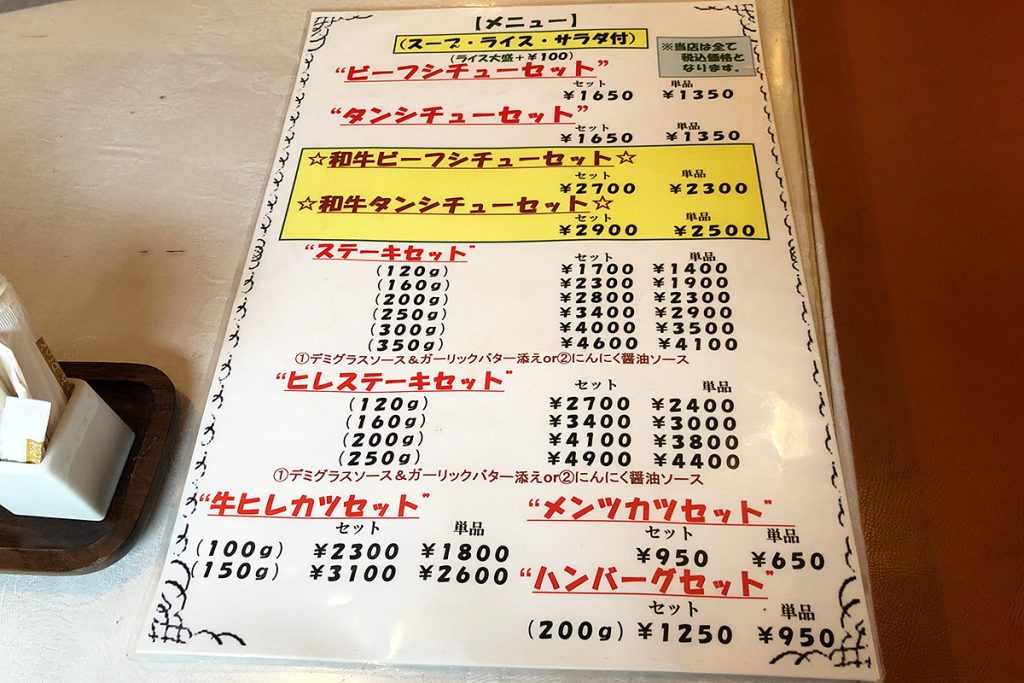 【メニュー】
（スープ・ライス・サラダ付）
（ライス大盛＋¥100）
※当店は全て
税込価格と
なります。
“ビーフシチューセット”
セット 単品
¥1650 ¥1350
“タンシチューセット”
セット 単品
¥1650 ¥1350
☆和牛ビーフシチューセット☆
セット 単品
¥2700 ¥2300
☆和牛タンシチューセット☆
セット 単品
¥2900 ¥2500
“ステーキセット”
セット 単品
（120g） ¥1700 ¥1400
（160g） ¥2300 ¥1900
（200g） ¥2800 ¥2300
（250g） ¥3400 ¥2900
（300g） ¥4000 ¥3500
（350g） ¥4600 ¥4100
①デミグラスソース＆ガーリックバター添えor②にんにく醤油ソース
“ヒレステーキセット”
セット 単品
（120g） ¥2700 ¥2400
（160g） ¥3400 ¥3000
（200g） ¥4100 ¥3800
（250g） ¥4900 ¥4400
①デミグラスソース＆ガーリックバター添えor②にんにく醤油ソース
“牛ヒレカツセット”
セット 単品
（100g） ¥2300 ¥1800
（150g） ¥3100 ¥2600
“メンツカツセット”
セット 単品
¥950 ¥650
“ハンバーグセット”
セット 単品
（200g） ¥1250 ¥950